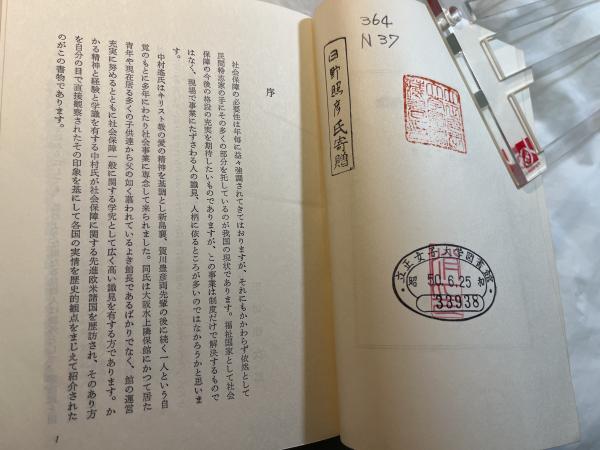 序
社会保障の必要性は年毎に益々強調されてきておりますが、それにもかかわらず依然として
民間特志家の手にその多くの部分を托しているのが我国の現状であります。福祉国家として社会
保障の今後の格段の充実を期待したいものでありますが、この事業は制度だけで解決するもので
はなく、現場で事業にたずさわる人の識見、人柄に依るところが多いのではなかろうかと思いま
す。
中村遙氏はキリスト教の愛の精神を基調とし新島襄、賀川豊彦両先輩の後に続く一人という自
覚のもとに多年にわたり社会事業に専念して来られました。同氏は大阪水上隣保館にかつて居た
青年や現在居る多くの子供達から父の如く慕われているよき館長であるばかりでなく、館の運営
充実に努めるとともに社会保障一般に関する学究として広く高い識見を有する方であります。か
かる精神と経験と学識を有する中村氏が社会保障に関する先進欧米諸国を歴訪され、そのあり方
を自分の目で直接観察されたその印象を基にして各国の実情を歴史的観点をまじえて紹介された
のがこの書物であります。
1
364
N37
日野照彦氏寄贈
立正女子大学図書館
昭 50.6.25 和
33938